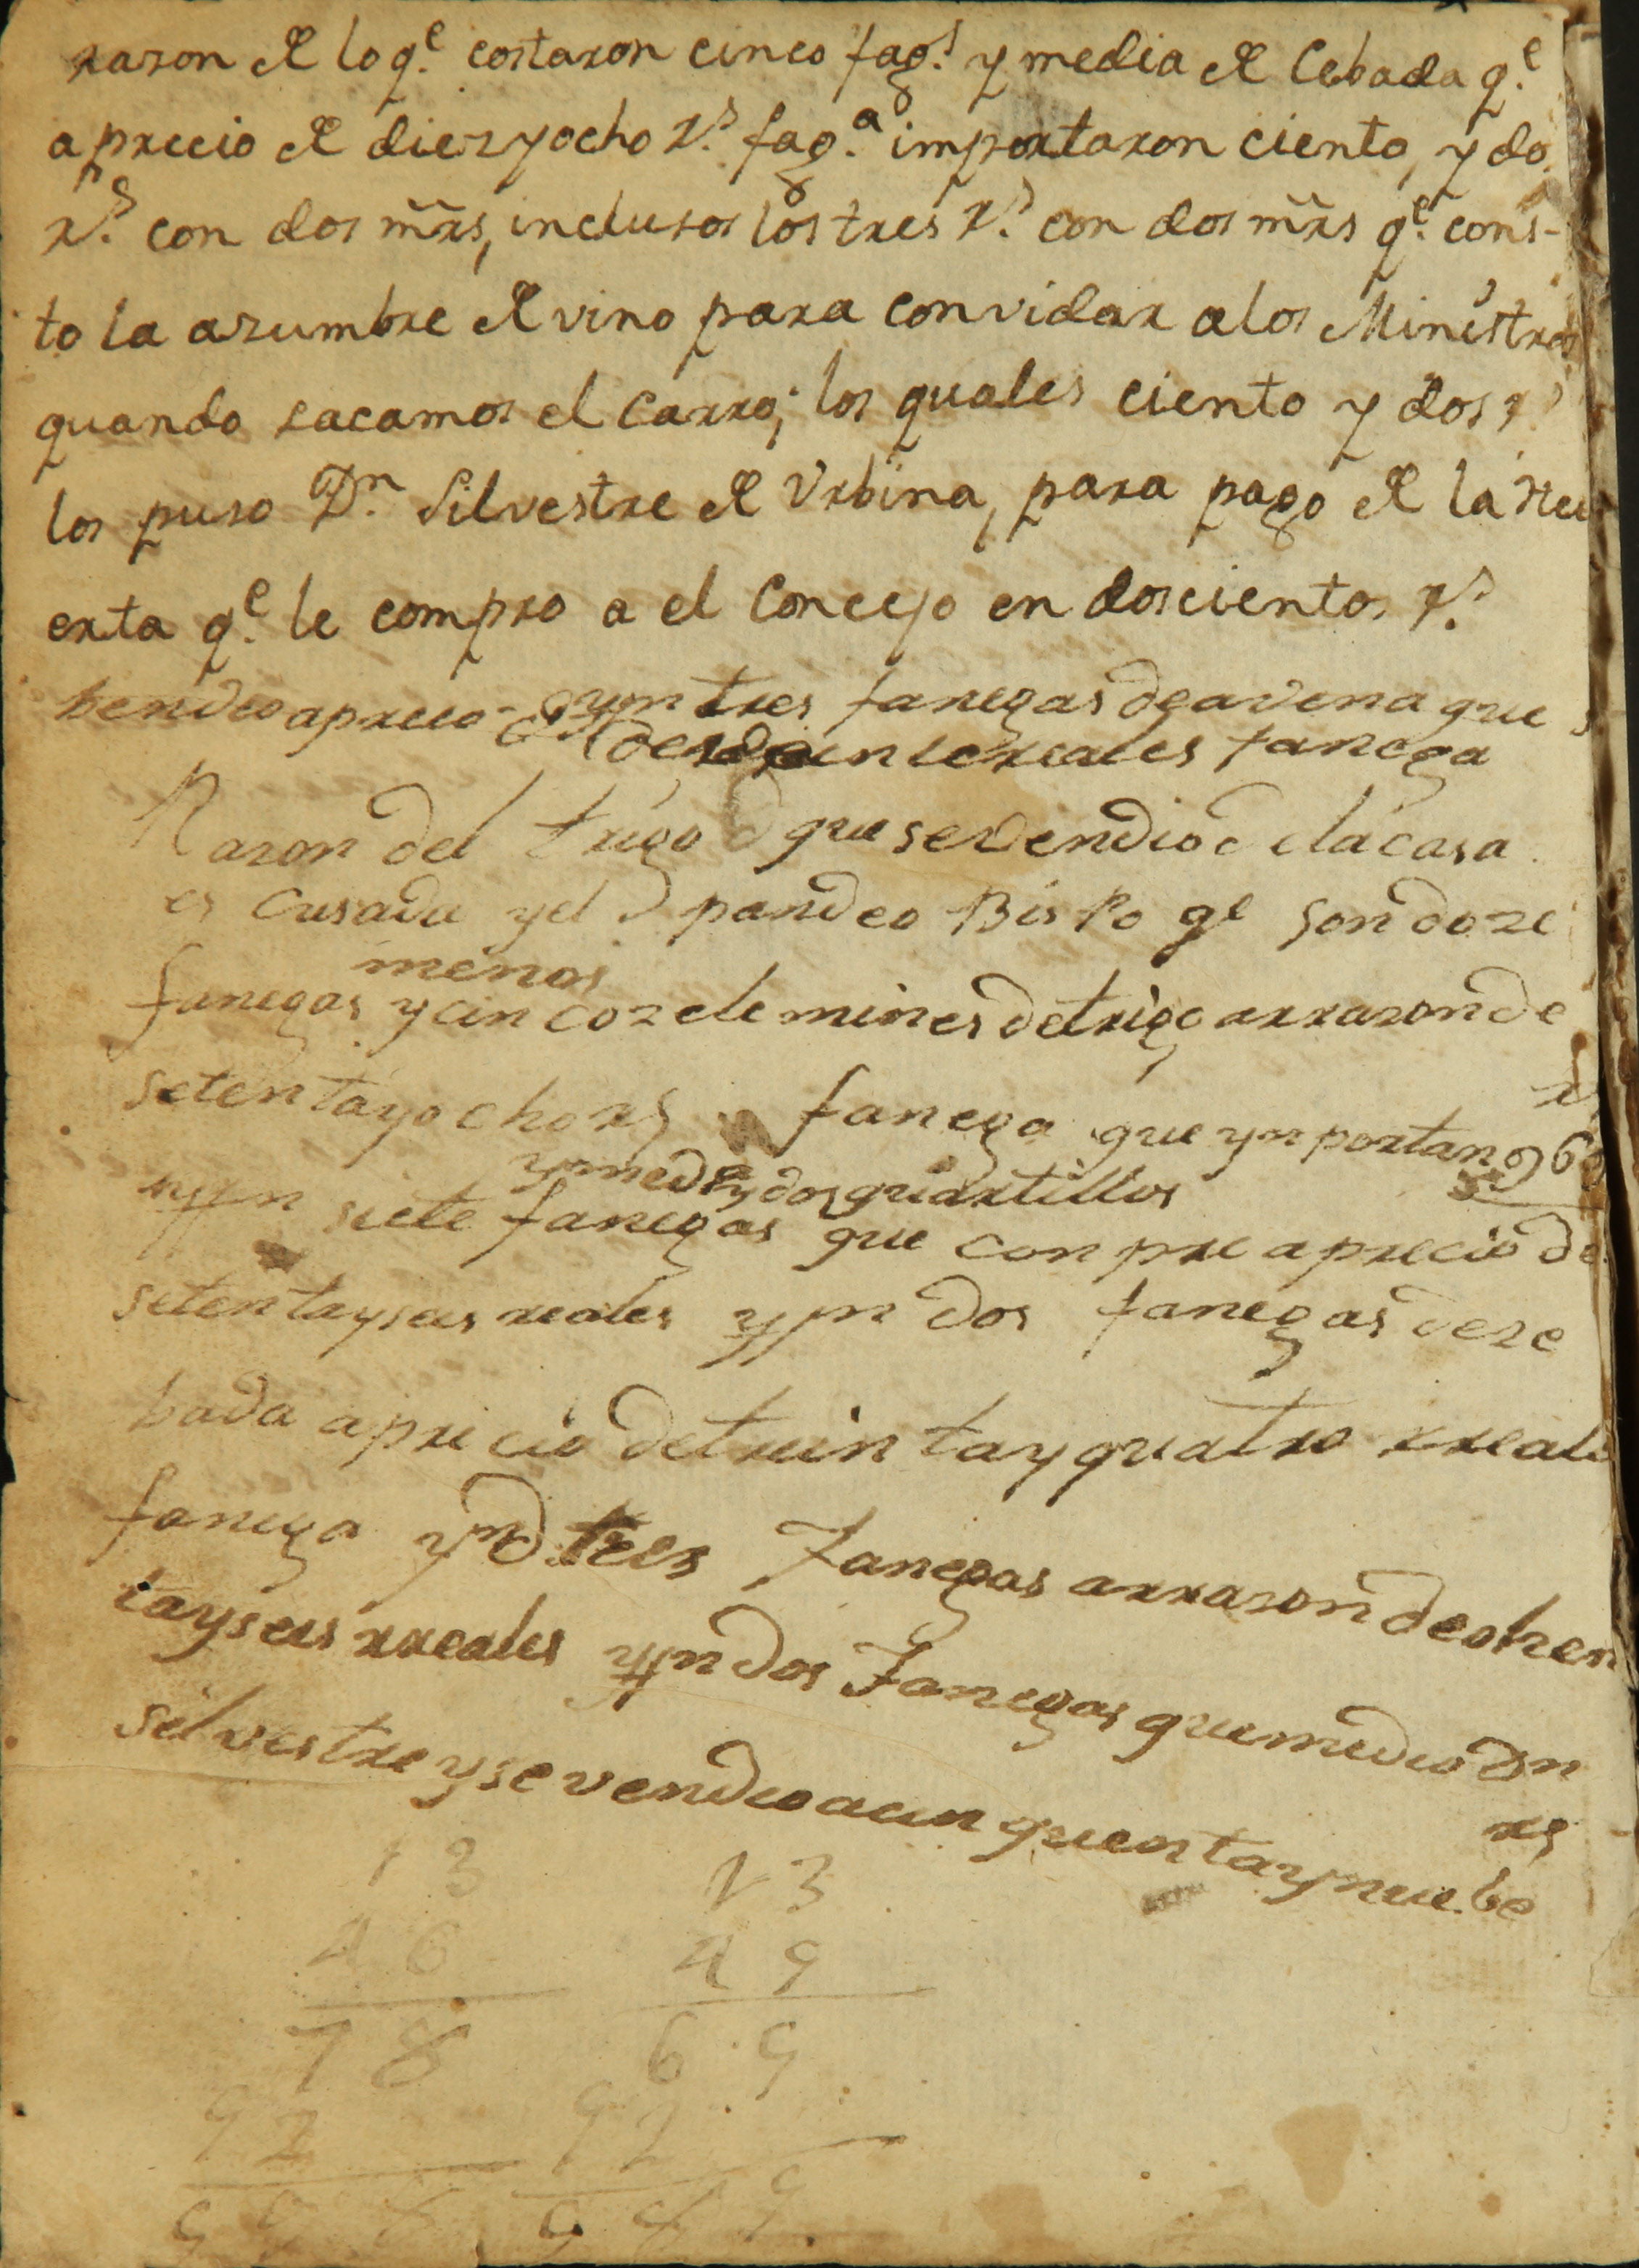 razon de lo q.e costaron cinco fag.s y media de Cebada q.e
a precio de diez y ocho r.s fag.a importaron ciento, y do
r.s con dos mrs, inclusos los tres r.s con dos mrs q.e cons-
to la azumbre de vino para convidar a los Ministros
quando sacamos el Carro; los quales ciento y dos r.s
los puso D.n Silvestre de Vrbina, para pago de la Hu
erta q.e le compro a el Concejo en doscientos r.s
bendeo aprecio yn tres fanegas de avena que
reales fanega
Razon del trigo que se vendio de la casa
escusada y el d pandeo Bispo qe son doze
menos
fanegas y cinco zelemines de trigo arrazon de
setenta y ocho rs fanega que ynportan 96
y media y dos quartillos
yyn siete fanegas que conpre aprecio de
setenta y seis reales yyn dos fanegas de ze
bada aprecio de treinta y quatro rreale
fanega yn d tres fanegas arrazon de ohen
ta y seis rreales yyn dos fanegas que me dio Dn
silvestre y se vendeo a cinquenta y nuebe rs
13 13
46 49
78 69
92 92
998 989